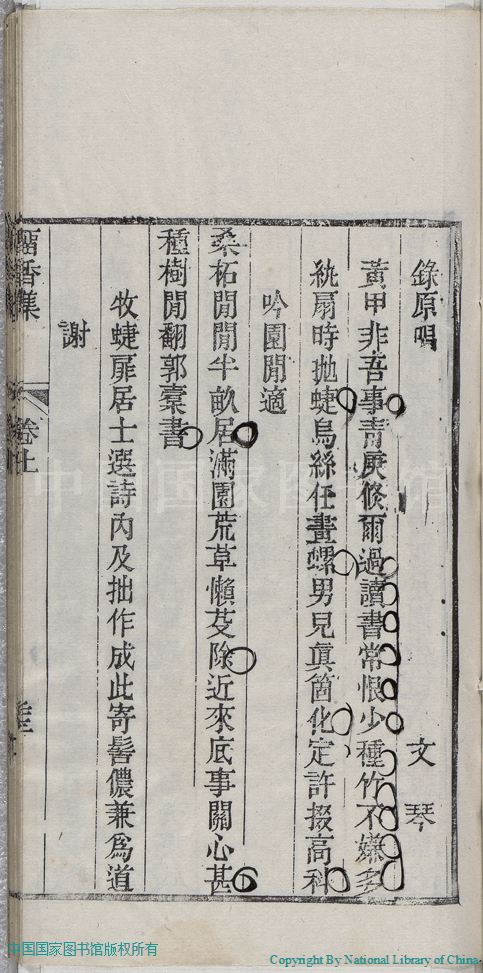 錄原唱
文琴
黃甲非吾事靑庚倐爾過讀書常恨少種竹不嫌多
紈扇時抛蜨烏絲任畫螺男兒眞箇化定許掇高科
吟園閒適
桑柘閒閒半畝居滿園荒草懶芟除近來底事關心甚
種樹閒翻郭橐書
牧蜨扉居士選詩內及拙作成此寄髻儂兼爲道
謝
香集
卷上
中国国家图书馆
中国国家图书馆版权所有
Copyright By National Library of China